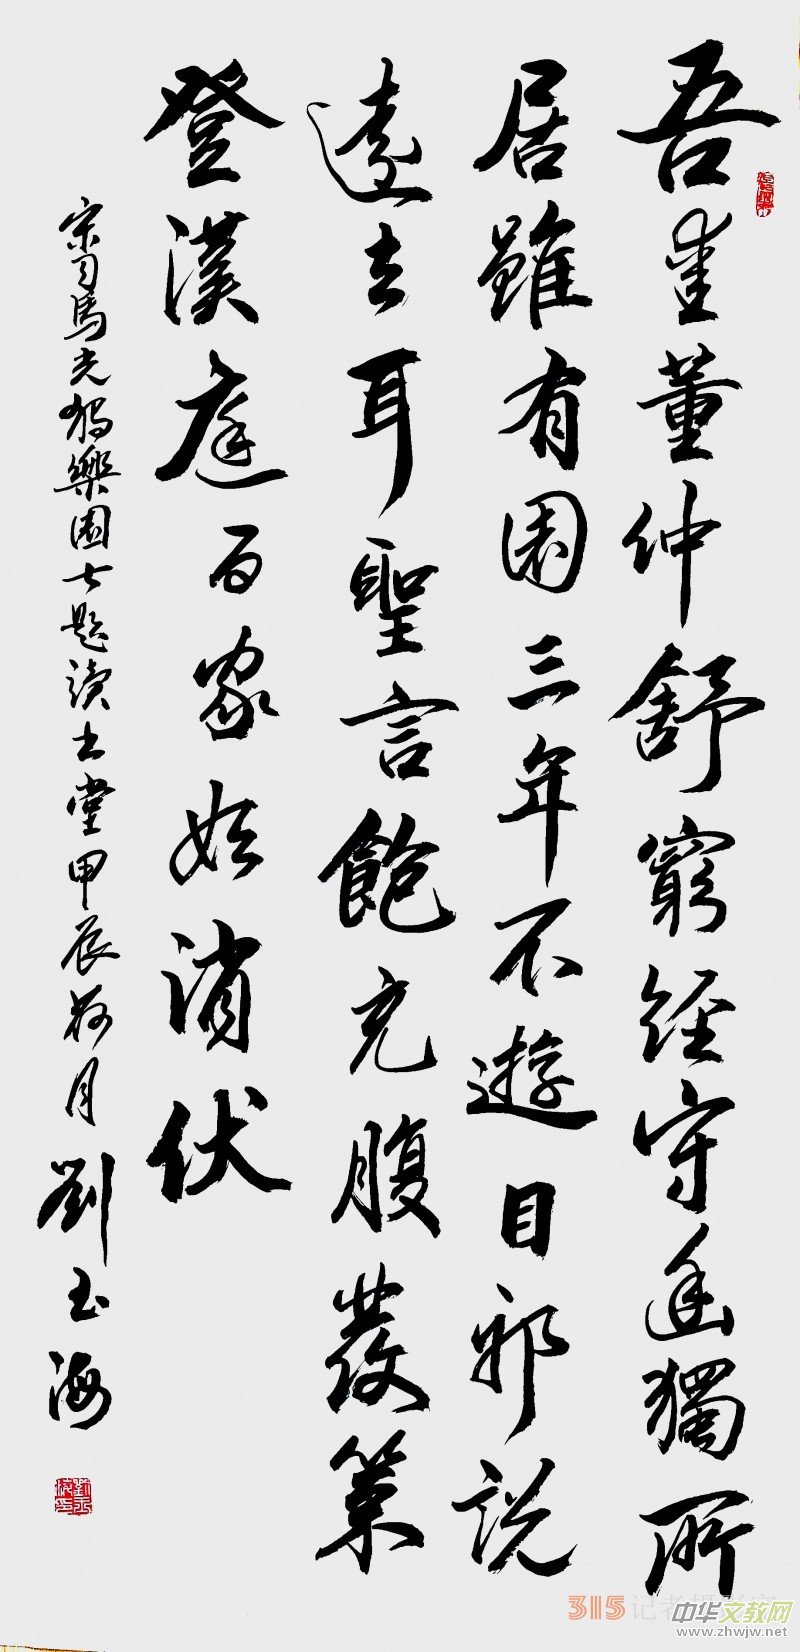 吾愛董仲舒窮經守幽獨所
居雖有園三年不遊目邪説
遠去耳聖言飽充腹發策
登漢庭百家始消伏
宋司馬光獨樂園七題讀書堂甲辰荷月劉玉海
315记者摄影家
中华文教网
www.zhwjw.net